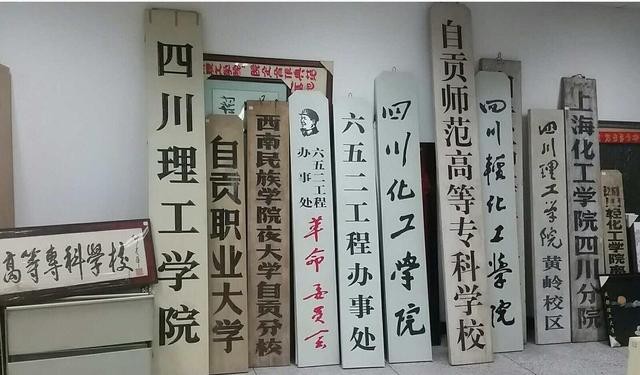 四川理工学院
自贡职业大学
西南民族学院夜大学自贡分校
六五二工程
办事处
革命委员会
六五二工程办事处
四川化工学院
自贡师范高等专科学校
四川輕化工學院
四川理工学院黄岭校区
上海化工学院四川分院
高等專科學校